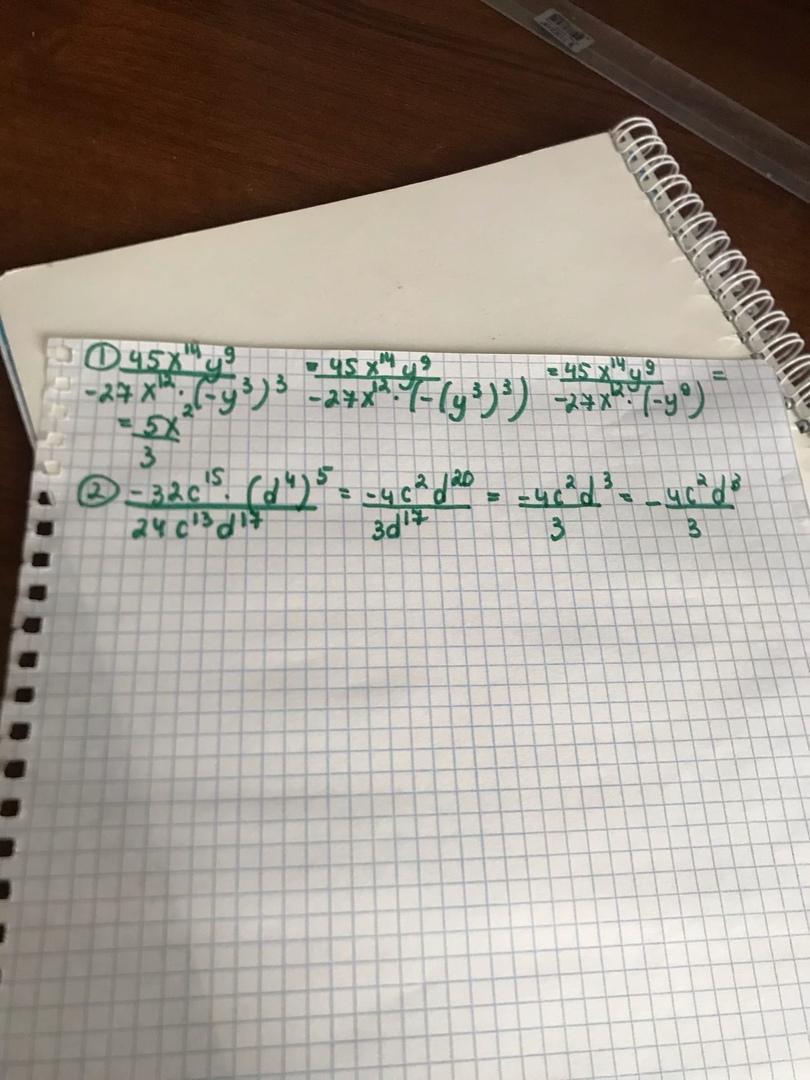 ① 45x¹⁴y⁹ / -27x¹²·(-y³)³ = 45x¹⁴y⁹ / -27x¹²·(-(y³)³) = 45x¹⁴y⁹ / -27x¹²·(-y⁹) =
= 5x² / 3
② -32c¹⁵·(d⁴)⁵ / 24c¹³d¹⁷ = -4c²d²⁰ / 3d¹⁷ = -4c²d³ / 3 = - 4c²d³ / 3